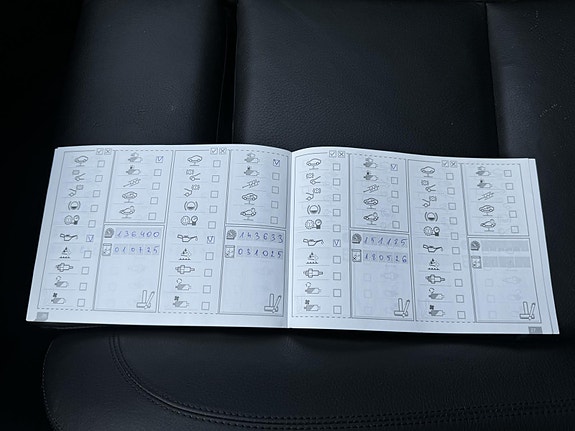 136400
010725
143633
031025
151185
180526